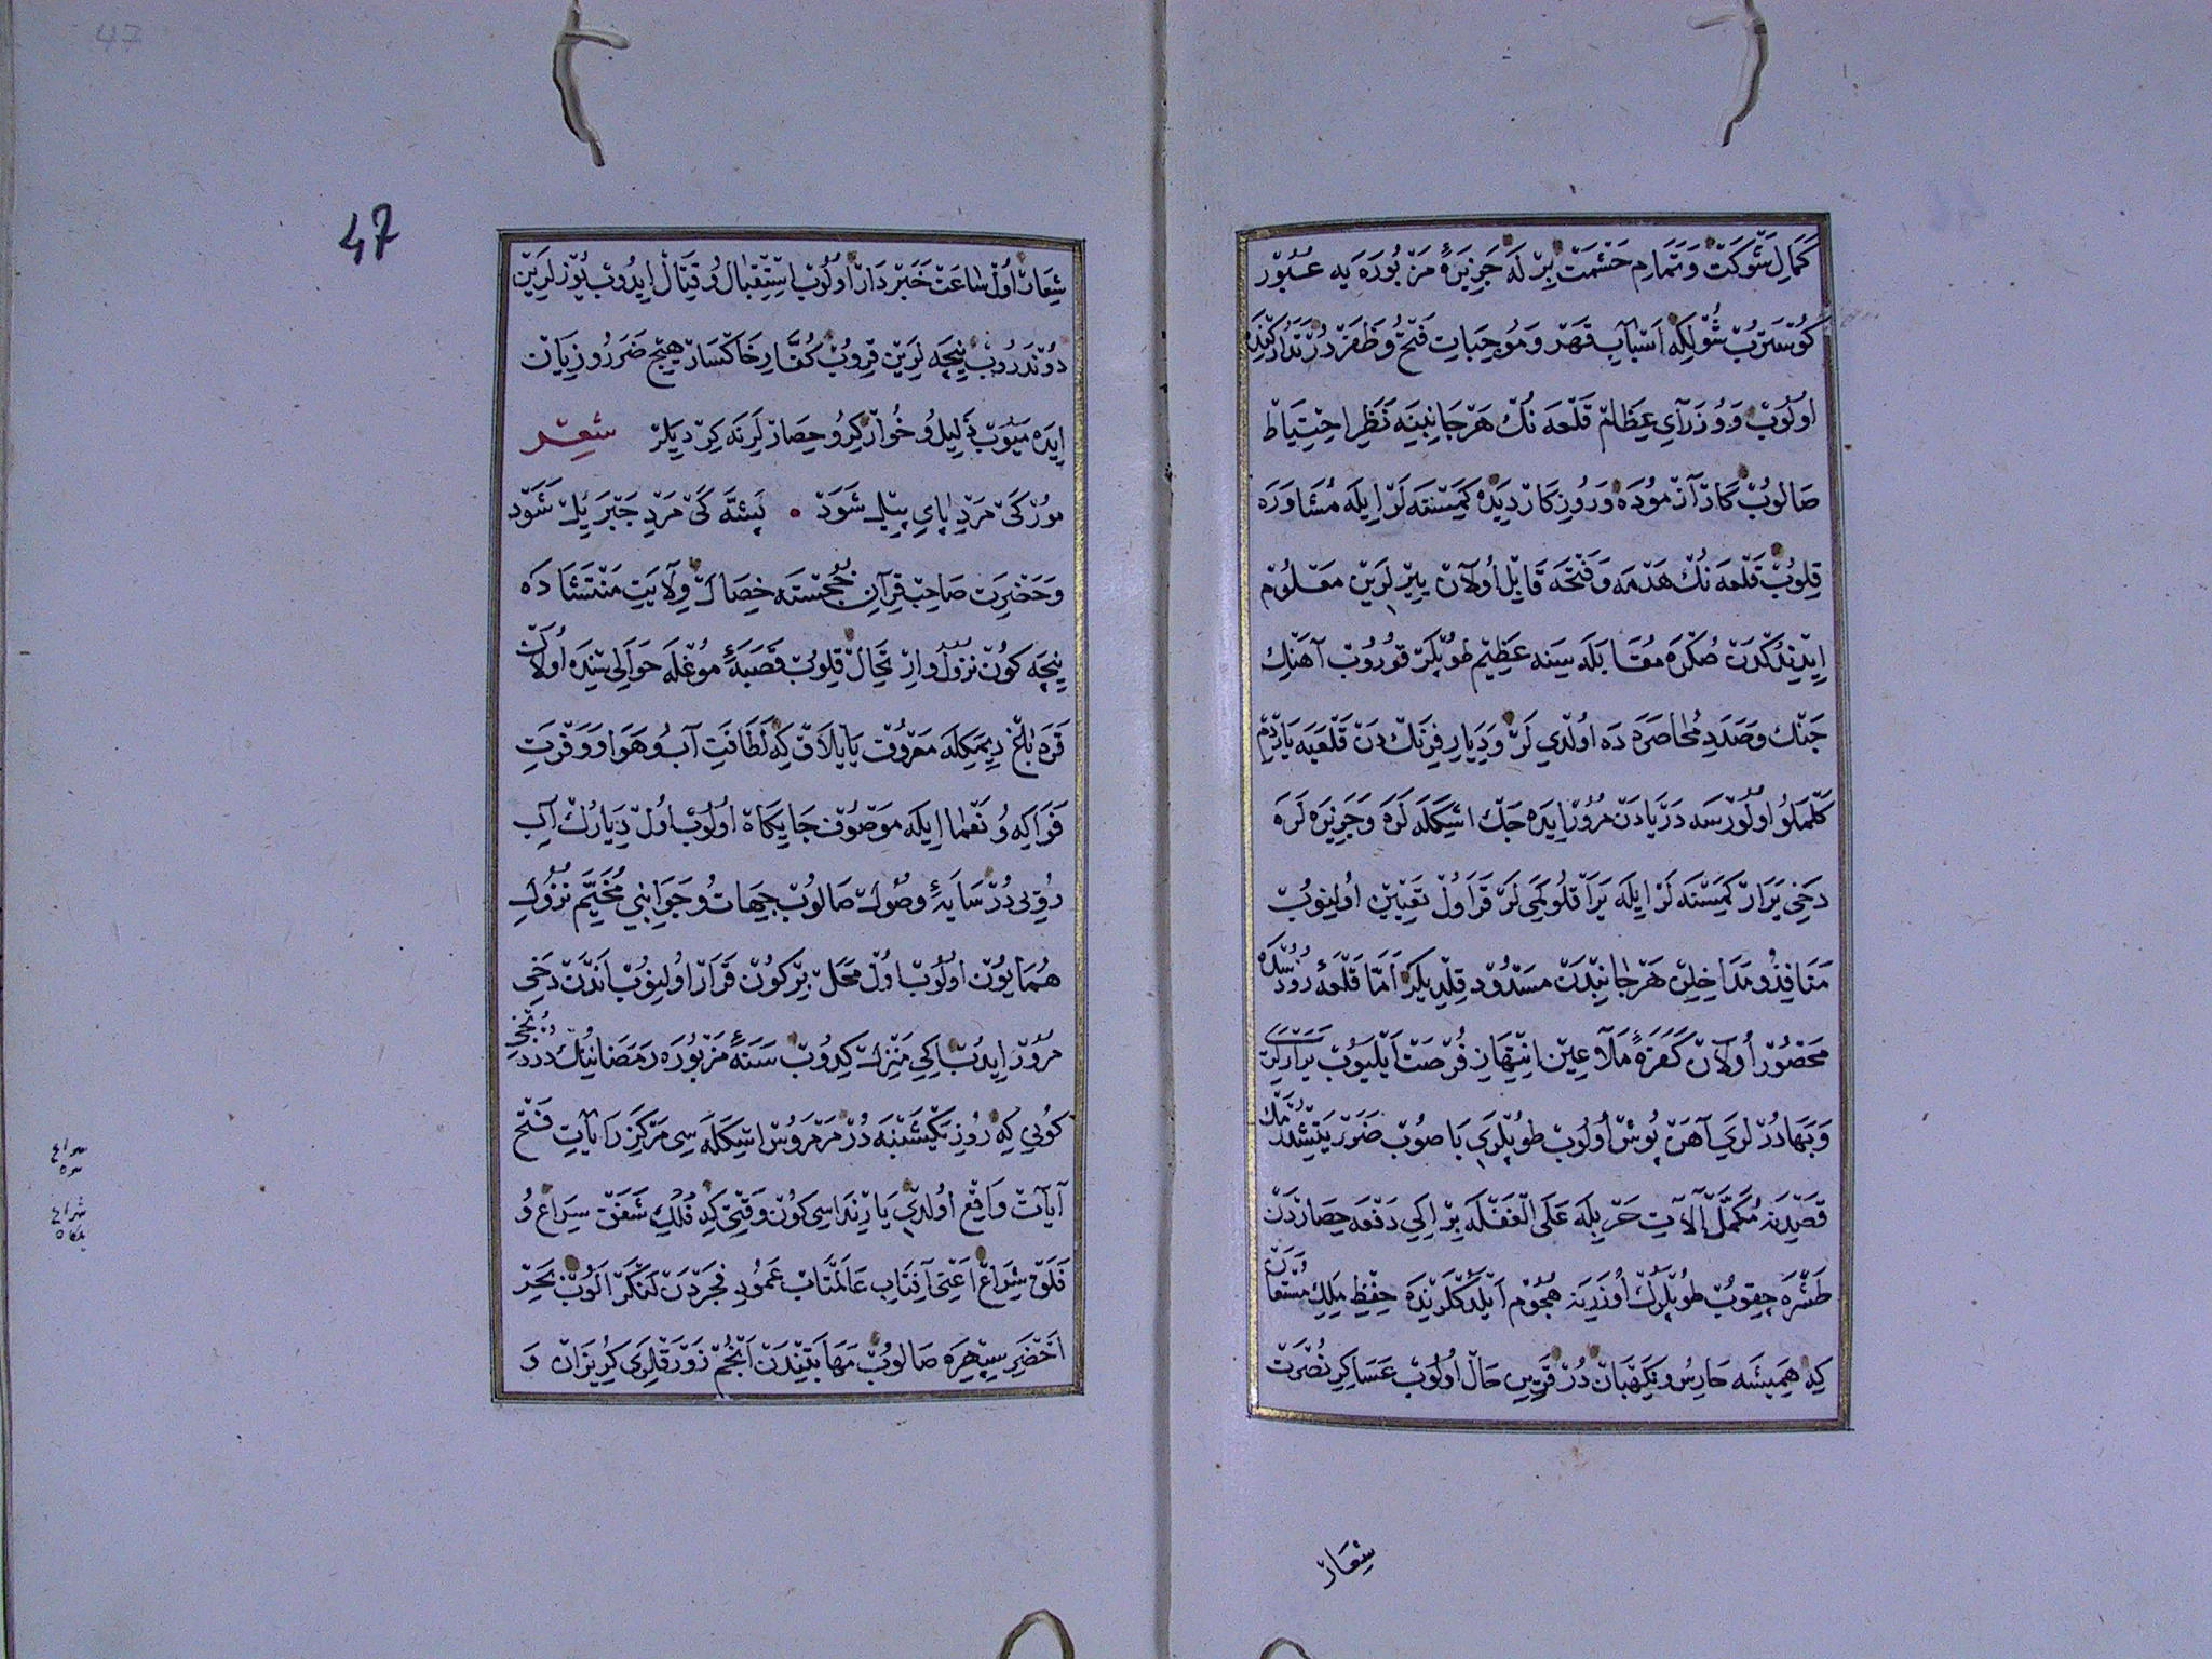 كَمَالِ شَوْكَتْ وَتَمَامِ حَشْمَتْ بِرْلَه جَزِيرَهٔ مَزْبُورَه يَه عُبُورْ
كُوسْتَرُبْ شُولْكِه اَسْبَابِ قَهْر وَمُوجِبَاتِ فَتْحُ وَظَفَرْدُرْ تَدَارُكِنْدَه
اُولُوبْ وَوُزَرَآىِ عِظَامْ قَلْعَه نُكْ هَرْجَانِبِينَه نَظَرِ احْتِيَاطْ
صَالُوبْ كَارْ آزْمُودَه وَرُوزِكَارْدِيدَه كَمِسْنَه لَرْ اِيلَه مُشَاوَرَه
قِلُوبْ قَلْعَه نُكْ هَدْمَه وَفَتْحَه قَابِلْ اُولَانْ يِيرْلَرِينْ مَعْلُومْ
اِيدِنْدُكْدَنْ صُكْرَه مُقَابَلَه سِينَه عَظِيمْ طُوپْلَرْ قُورُوبْ آهَنْكِ
جَنْك وَصَدَدِ مُحَاصَرَه دَه اُولْدِي لَرْ وَدِيَارِ فِرَنْك دَنْ قَلْعَيَه يَارْدِمْ
كَلْمَلُو اُولُورْسَه دَرْيَادَنْ مُرُورْ اِيدَه جَكْ اسْكَلَه لَرَه وَجَزِيرَه لَرَه
دَخِى يَرَارْ كَمِسْنَه لَرْ اِيلَه يَرَاقْلُو كَمِى لَرْ قَرَاوُلْ تَعْيِينْ اُولِنُوبْ
مَنَافِذُ و مَدَاخِلِنْ هَرْ جَانِبْدَنْ مَسْدُودْ قِلْدِيلَرْ اَمَّا قَلْعَهٔ رُودُسْدَه
مَحْصُورْ اُولَانْ كَفَرَهٔ مَلَاعِينْ انْتِهَازِ فُرْصَتْ اَيْلَيُوبْ يَرَارْلَرِى
وَبَهَادُرْلَرِى آهَنْ پُوشْ اُولُوبْ طُوپْلَرِى بَاصُوبْ ضَرَرْ يَتِشْدُرْمَكْ
قَصْدِينَه مُكَمَّلْ آلَاتِ حَرْبِيلَه عَلَى الْغَفْلَه بِرْ اِكِى دَفْعَه حِصَارْدَنْ
طَشْرَه چِقُوبْ طُوپْلَرُكْ اُوزَرِينَه هُجُومْ اَيْلَدُكْلَرِنْدَه حِفْظِ مَلِكِ مُسْتَعَانْ
كِه هَمِيشَه حَارِسُ و نِكَهْبَانْ دُرْ قَرِينِ حَالْ اُولُوبْ عَسَاكِرِ نُصْرَتْ
شِعَارْ
47
47
شِعَارْ اُولْ سَاعَتْ خَبَرْدَارْ اُولُوبْ اسْتِقْبَالُ و قِتَالْ اِيدُوبْ يُوزْلَرِينْ
دُونْدَرُوبْ نِيچَه لَرِينْ قِرُوبْ كُفَّارِ خَاكْسَارْ هِيچْ ضَرَرُ و زِيَانْ
اِيدَه مَيُوبْ ذَلِيلُ و خُوارْ كِرُو حِصَارْلَرِنَه كِرْدِيلَرْ شعر
مُورْ كَىْ مَرْدِ پَاىِ پِيلْ شَوَدْ ٠ پَشَّه كَىْ مَرْدِ جَبْرَيِلْ شَوَدْ
وَحَضْرَتِ صَاحِبْ قِرَانِ خُجَسْتَه خِصَالْ وِلَايَتِ مَنْتَشَا دَه
نِيچَه كُونْ نُزُولُ وارْتِحَالْ قِلُوبْ قَصَبَهٔ مُوغْلَه حَوَالِى سِنْدَه اُولَانْ
قَرَه بَاغْ دِيمَكِلَه مَعْرُوفْ يَايْلَاقْ كِه لَطَافَتِ آبُ و هَوَا وَوَفْرَتِ
فَوَاكِه وُ نَعْمَا اِيلَه مَوْصُوفْ جَايِكَاه اُولُوبْ اُولْ دِيَارُكْ آبِ
رُويِى دُرْ سَايَهٔ وصُولْ صَالُوبْ جِهَاتُ و جَوَانِبِى مُخَيَّمِ نُزُولِ
هُمَايُونْ اُولُوبْ اُولْ مَحَلْ بِرْ كُونْ قَرَارْ اُولِنُوبْ اَنْدَنْ دَخِى
مُرُورْ اِيدُبْ اِكِى مَنْزِلْ كِدُوبْ سَنَهٔ مَزْبُورَه رَمَضَانِنُكْ دُرْدُنْجِى
كُونِى كِه رُوزِ يَكْشَنْبَه دُرْ مَرْمَرُوسْ اسْكَلَه سِى مَرْكَزِ رَايَاتِ فَتْح
آيَاتْ وَاقِعْ اُولْدِى يَارِنْدَاسِى كُونْ وَقْتِى كِه فُلْكِ شَفَقْ سِرَاعْ وُ
فَلَقْ شِرَاعْ اَعْنِى آفِتَابِ عَالَمْتَابْ عَمُودِ فَجَرْدَنْ لَنْكَرْ اَلُوبْ بَحْرِ
اَخْضَرِ سِپِهْرَه صَالُوبْ مَهَابَتِنْدَنْ اَنْجُمْ زَوْرَقْلَرِى كُرِيزَانْ وَ